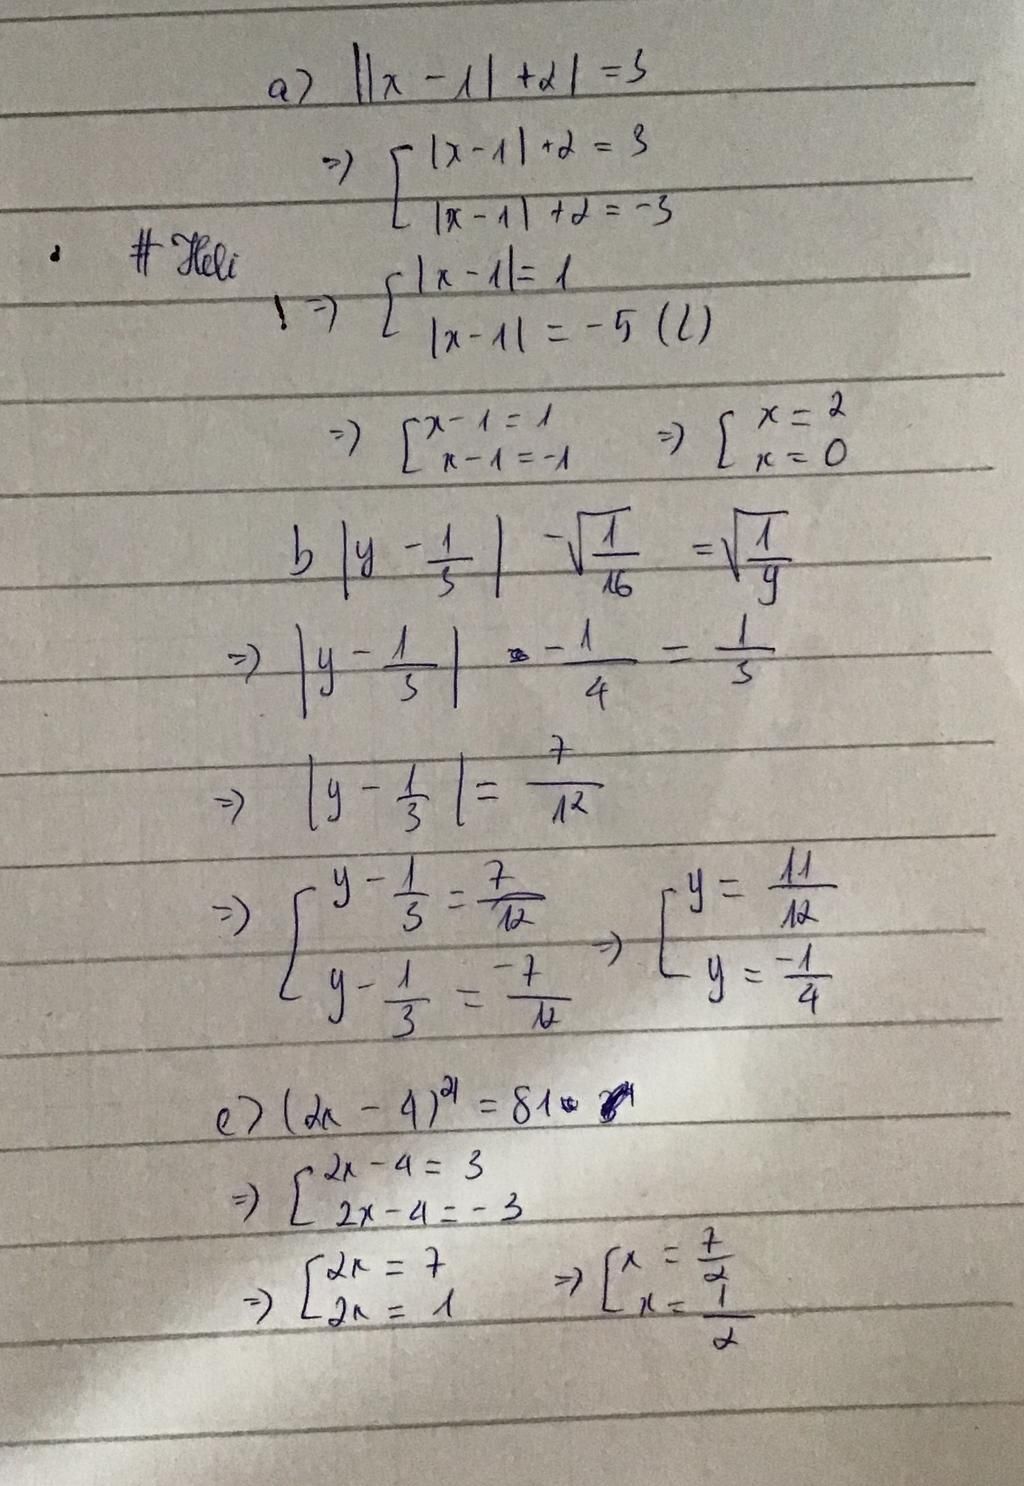 a) ||x - 1| + 2| = 3
=> [ |x - 1| + 2 = 3
|x - 1| + 2 = -3
# Heli
=> [ |x - 1| = 1
|x - 1| = -5 (L)
=> [ x - 1 = 1 => [ x = 2
x - 1 = -1 x = 0
b |y - 1/3| - √(1/16) = √(1/9)
=> |y - 1/3| - 1/4 = 1/3
=> |y - 1/3| = 7/12
=> [ y - 1/3 = 7/12 => [ y = 11/12
y - 1/3 = -7/12 y = -1/4
c) (2x - 4)^4 = 81
=> [ 2x - 4 = 3
2x - 4 = -3
=> [ 2x = 7 => [ x = 7/2
2x = 1 x = 1/2